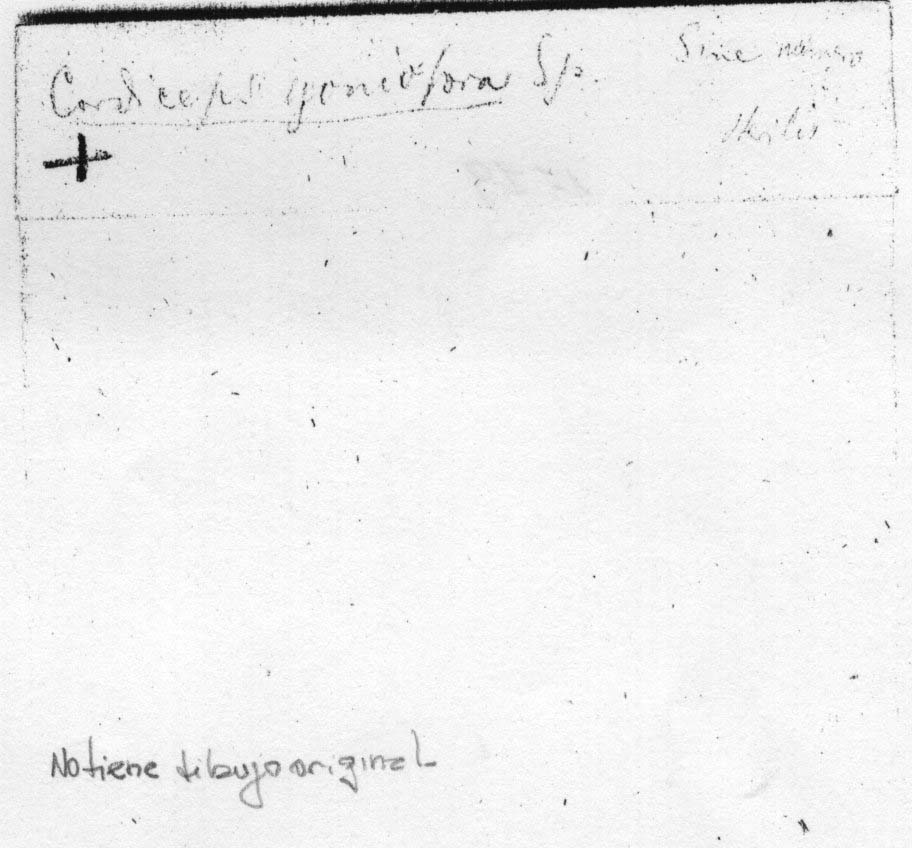 Cordiceps goniofora Sp.
Sine número
No tiene dibujo original